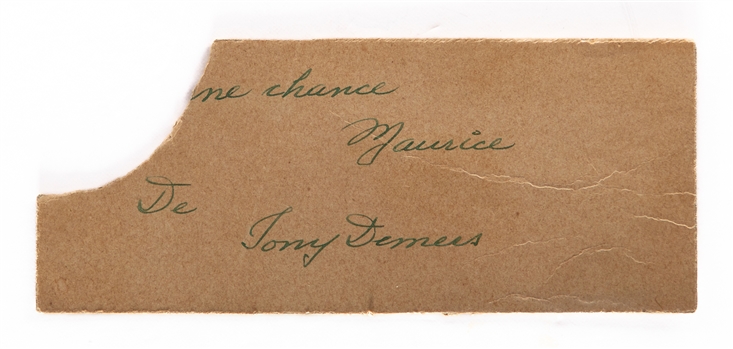 ne chance
Maurice
De
Tony Demers